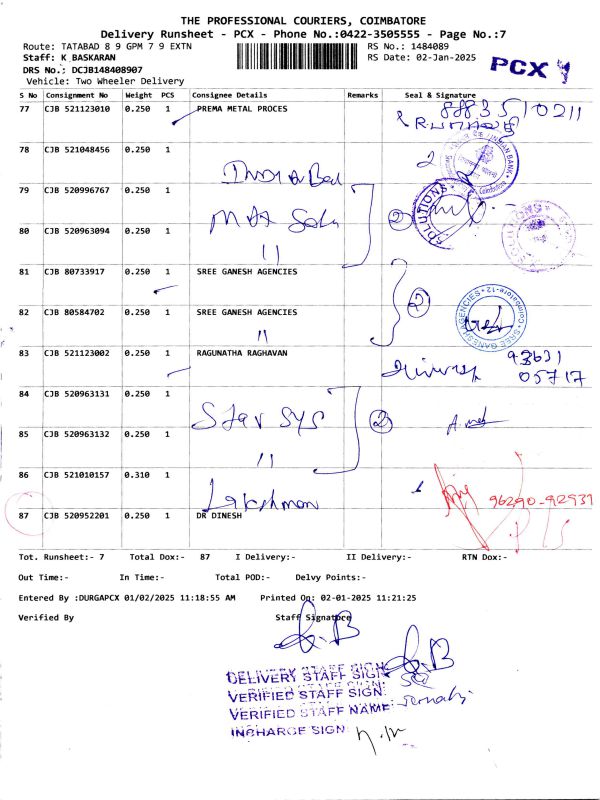 THE PROFESSIONAL COURIERS, COIMBATORE
Delivery Runsheet - PCX - Phone No.:0422-3505555 - Page No.:7
Route: TATABAD 8 9 GPM 7 9 EXTN
RS No.: 1484089
Staff: K BASKARAN
RS Date: 02-Jan-2025
DRS No.: DCJB148408907
PCX
Vehicle: Two Wheeler Delivery
S No Consignment No Weight PCS Consignee Details Remarks Seal & Signature
77 CJB 521123010 0.250 1 PREMA METAL PROCES
78 CJB 521048456 0.250 1
INDIAN BANK
79 CJB 520996767 0.250 1
SOLUTIONS
80 CJB 520963094 0.250 1
11
2
81 CJB 80733917 0.250 1 SREE GANESH AGENCIES
82 CJB 80584702 0.250 1 SREE GANESH AGENCIES
11
2
SREE GANESH AGENCIES Coimbatore-12
83 CJB 521123002 0.250 1 RAGUNATHA RAGHAVAN
93631
05717
84 CJB 520963131 0.250 1
Star Sys
2
85 CJB 520963132 0.250 1
11
86 CJB 521010157 0.310 1
Lakshman
96290-92931
87 CJB 520952201 0.250 1 DR DINESH
Tot. Runsheet:- 7 Total Dox:- 87 I Delivery:- II Delivery:- RTN Dox:-
Out Time:- In Time:- Total POD:- Delvy Points:-
Entered By :DURGAPCX 01/02/2025 11:18:55 AM Printed On: 02-01-2025 11:21:25
Verified By Staff Signature
DELIVERY STAFF SIGN:
VERIFIED STAFF SIGN:
VERIFIED STAFF NAME:
INCHARGE SIGN: